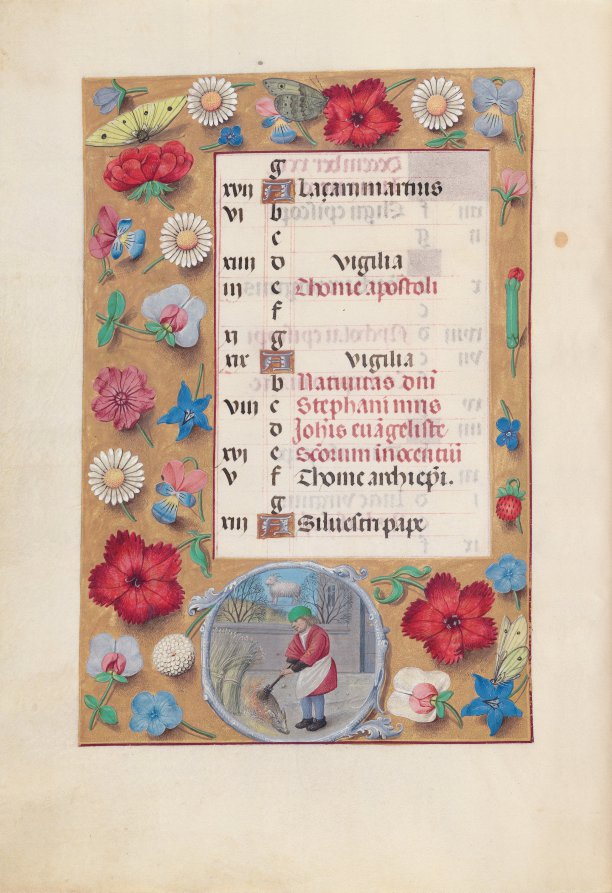 g
xvii A Laçari martiris
vi b
c
xiiii d vigilia
iii e Thome apostoli
f
xi g
xix A vigilia
b Nativitas dñi
viii c Stephani mris
d Joh̃is evãgeliste
xvi e Scõrum inocentiũ
v f Thome archiep̃i.
g
xiii A Silvestri pape